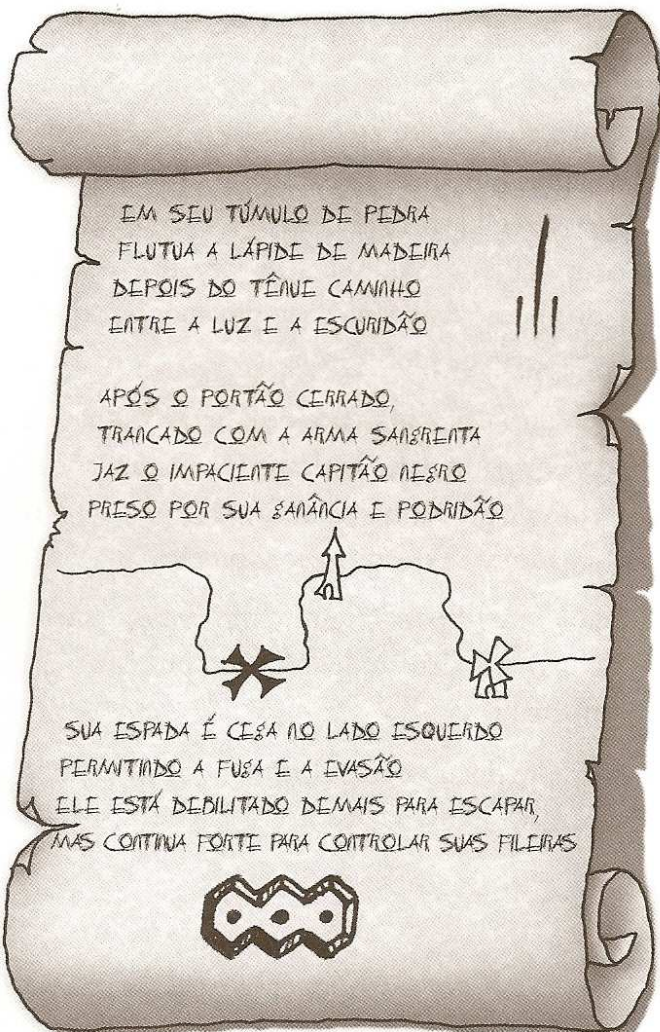 EM SEU TÚMULO DE PEDRA
FLUTUA A LÁPIDE DE MADEIRA
DEPOIS DO TÊNUE CAMINHO
ENTRE A LUZ E A ESCURIDÃO
APÓS O PORTÃO CERRADO,
TRANCADO COM A ARMA SANGRENTA
JAZ O IMPACIENTE CAPITÃO NEGRO
PRESO POR SUA GANÂNCIA E PODRIDÃO
SUA ESPADA É CEGA NO LADO ESQUERDO
PERMITINDO A FUGA E A EVASÃO
ELE ESTÁ DEBILITADO DEMAIS PARA ESCAPAR,
MAS CONTINUA FORTE PARA CONTROLAR SUAS FILEIRAS